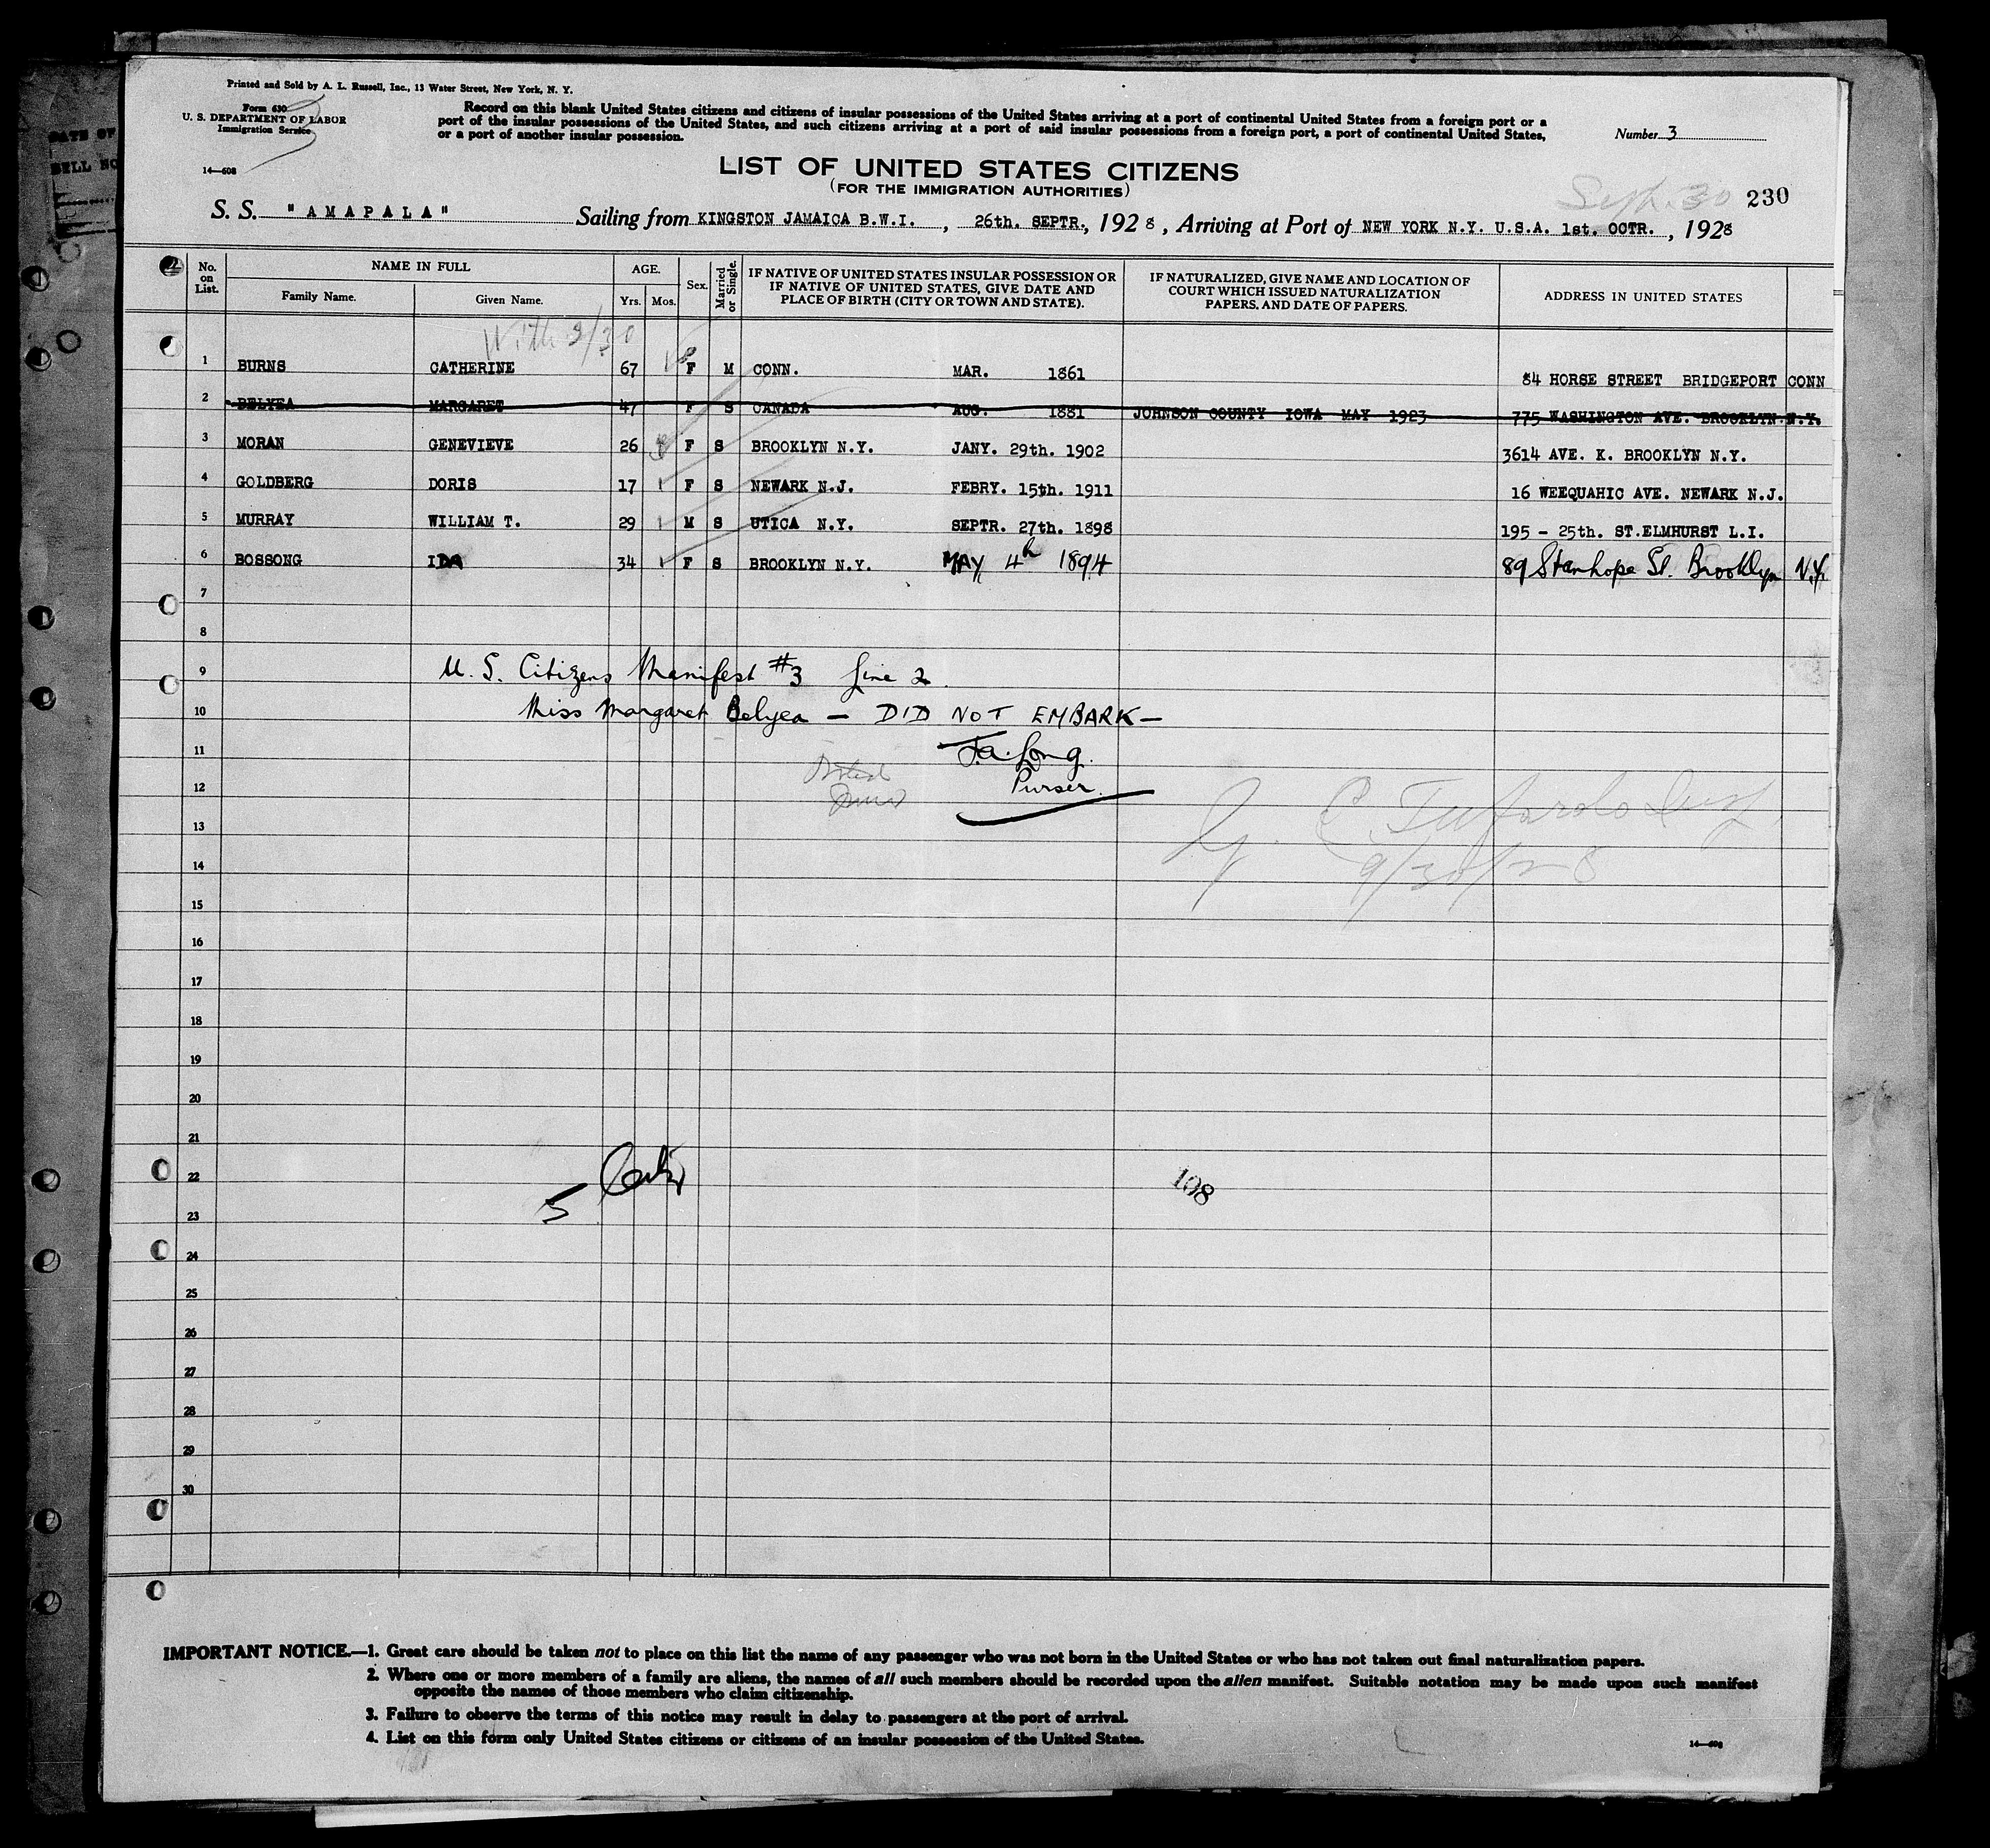 Printed and Sold by A. L. Russell, Inc., 13 Water Street, New York, N. Y.
Form 630
U. S. DEPARTMENT OF LABOR
Immigration Service
14—608
Record on this blank United States citizens and citizens of insular possessions of the United States arriving at a port of continental United States from a foreign port or a
port of the insular possessions of the United States, and such citizens arriving at a port of said insular possessions from a foreign port, a port of continental United States,
or a port of another insular possession.
Number 3
LIST OF UNITED STATES CITIZENS
(FOR THE IMMIGRATION AUTHORITIES)
Sept. 30 230
S. S. "AMAPALA" Sailing from KINGSTON JAMAICA B.W.I. , 26th. SEPTR., 1928 , Arriving at Port of NEW YORK N.Y. U.S.A. 1st. OCTR. , 1928
No. on List.
NAME IN FULL
Family Name. Given Name.
AGE.
Yrs. Mos.
Sex.
Married or Single.
IF NATIVE OF UNITED STATES INSULAR POSSESSION OR
IF NATIVE OF UNITED STATES, GIVE DATE AND
PLACE OF BIRTH (CITY OR TOWN AND STATE).
IF NATURALIZED, GIVE NAME AND LOCATION OF
COURT WHICH ISSUED NATURALIZATION
PAPERS, AND DATE OF PAPERS.
ADDRESS IN UNITED STATES
With 2/30
1 BURNS CATHERINE 67 F M CONN. MAR. 1861 84 HORSE STREET BRIDGEPORT CONN
2 BELYEA MARGARET 47 F S CANADA AUG. 1881 JOHNSON COUNTY IOWA MAY 1923 775 WASHINGTON AVE. BROOKLYN N.Y.
3 MORAN GENEVIEVE 26 F S BROOKLYN N.Y. JANY. 29th. 1902 3614 AVE. K. BROOKLYN N.Y.
4 GOLDBERG DORIS 17 F S NEWARK N.J. FEBRY. 15th. 1911 16 WEEQUAHIC AVE. NEWARK N.J.
5 MURRAY WILLIAM T. 29 M S UTICA N.Y. SEPTR. 27th. 1898 195 - 25th. ST. ELMHURST L.I.
6 BOSSONG IDA 34 F S BROOKLYN N.Y. MAY 4th 1894 89 Stanhope St. Brooklyn N.Y.
7
8
9 U. S. Citizens Manifest #3 Line 2.
10 Miss Margaret Belyea — DID NOT EMBARK —
11 J.A. Long.
12 Purser.
13
14 9/30/28
15
16
17
18
19
20
21
22 108
23 5
24
25
26
27
28
29
30
IMPORTANT NOTICE.—1. Great care should be taken not to place on this list the name of any passenger who was not born in the United States or who has not taken out final naturalization papers.
2. Where one or more members of a family are aliens, the names of all such members should be recorded upon the alien manifest. Suitable notation may be made upon such manifest
opposite the names of those members who claim citizenship.
3. Failure to observe the terms of this notice may result in delay to passengers at the port of arrival.
4. List on this form only United States citizens or citizens of an insular possession of the United States.
14—608